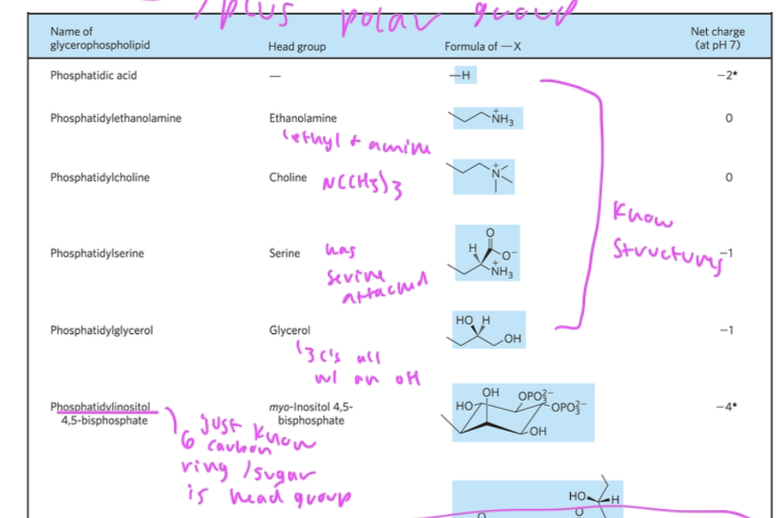 plus polar group
Name of glycerophospholipid Head group Formula of —X Net charge (at pH 7)
Phosphatidic acid — —H −2*
Phosphatidylethanolamine Ethanolamine NH3 + 0
ethyl + amine
Phosphatidylcholine Choline N+ 0
N(CH3)3
Know
structures
Phosphatidylserine Serine H O O− NH3 + −1
has
serine
attached
Phosphatidylglycerol Glycerol HO H OH −1
3 C's all
w/ an OH
Phosphatidylinositol 4,5-bisphosphate myo-Inositol 4,5-bisphosphate HO OH OPO3 2− OPO3 2− OH −4*
just know
6 carbon
ring /sugar
is head group
HO H
O